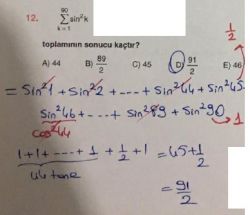 12. 90
∑ sin²k
k = 1
toplamının sonucu kaçtır?
A) 44 B) 89/2 C) 45 D) 91/2 E) 46
1/2
= sin²1 + sin²2 + --- + sin²44 + sin²45
sin²46 + --- + sin²89 + sin²90
cos²44 1
1+1+ --- + 1 + 1/2 + 1 = 45 + 1/2
44 tane
= 91/2